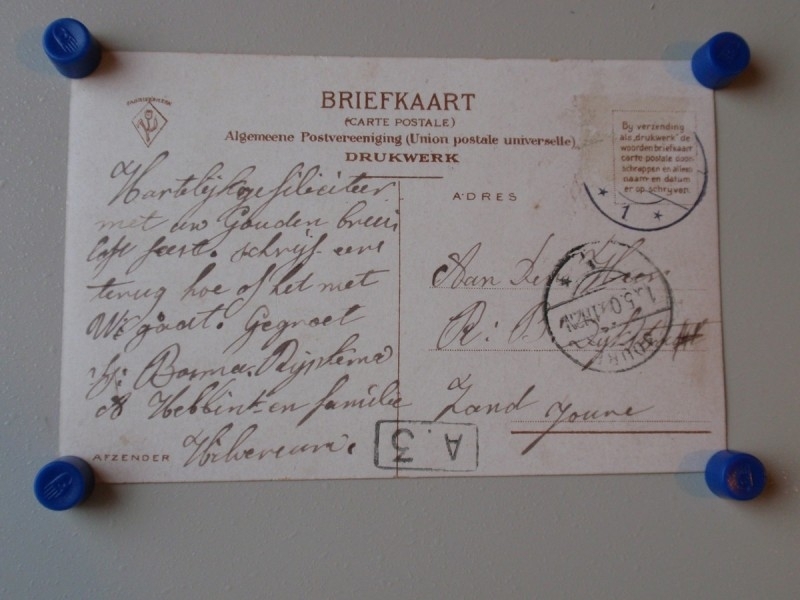 BRIEFKAART
(CARTE POSTALE)
Algemeene Postvereeniging (Union postale universelle)
DRUKWERK
By verzending
als „drukwerk" de
woorden briefkaart
carte postale door-
schrappen en alleen
naam- en datum
er op schryven.
1
Hartelijk gefiliciteer
met uw Gouden brui
lofs feest. schrijf eens
terug hoe of het met
U gaat. Gegroet
Bosma. Rijpkema
A Hebbink en familie
AFZENDER Hilversum.
ADRES
Aan Den Heer
R:
Zand Joure
JOURE
A.3